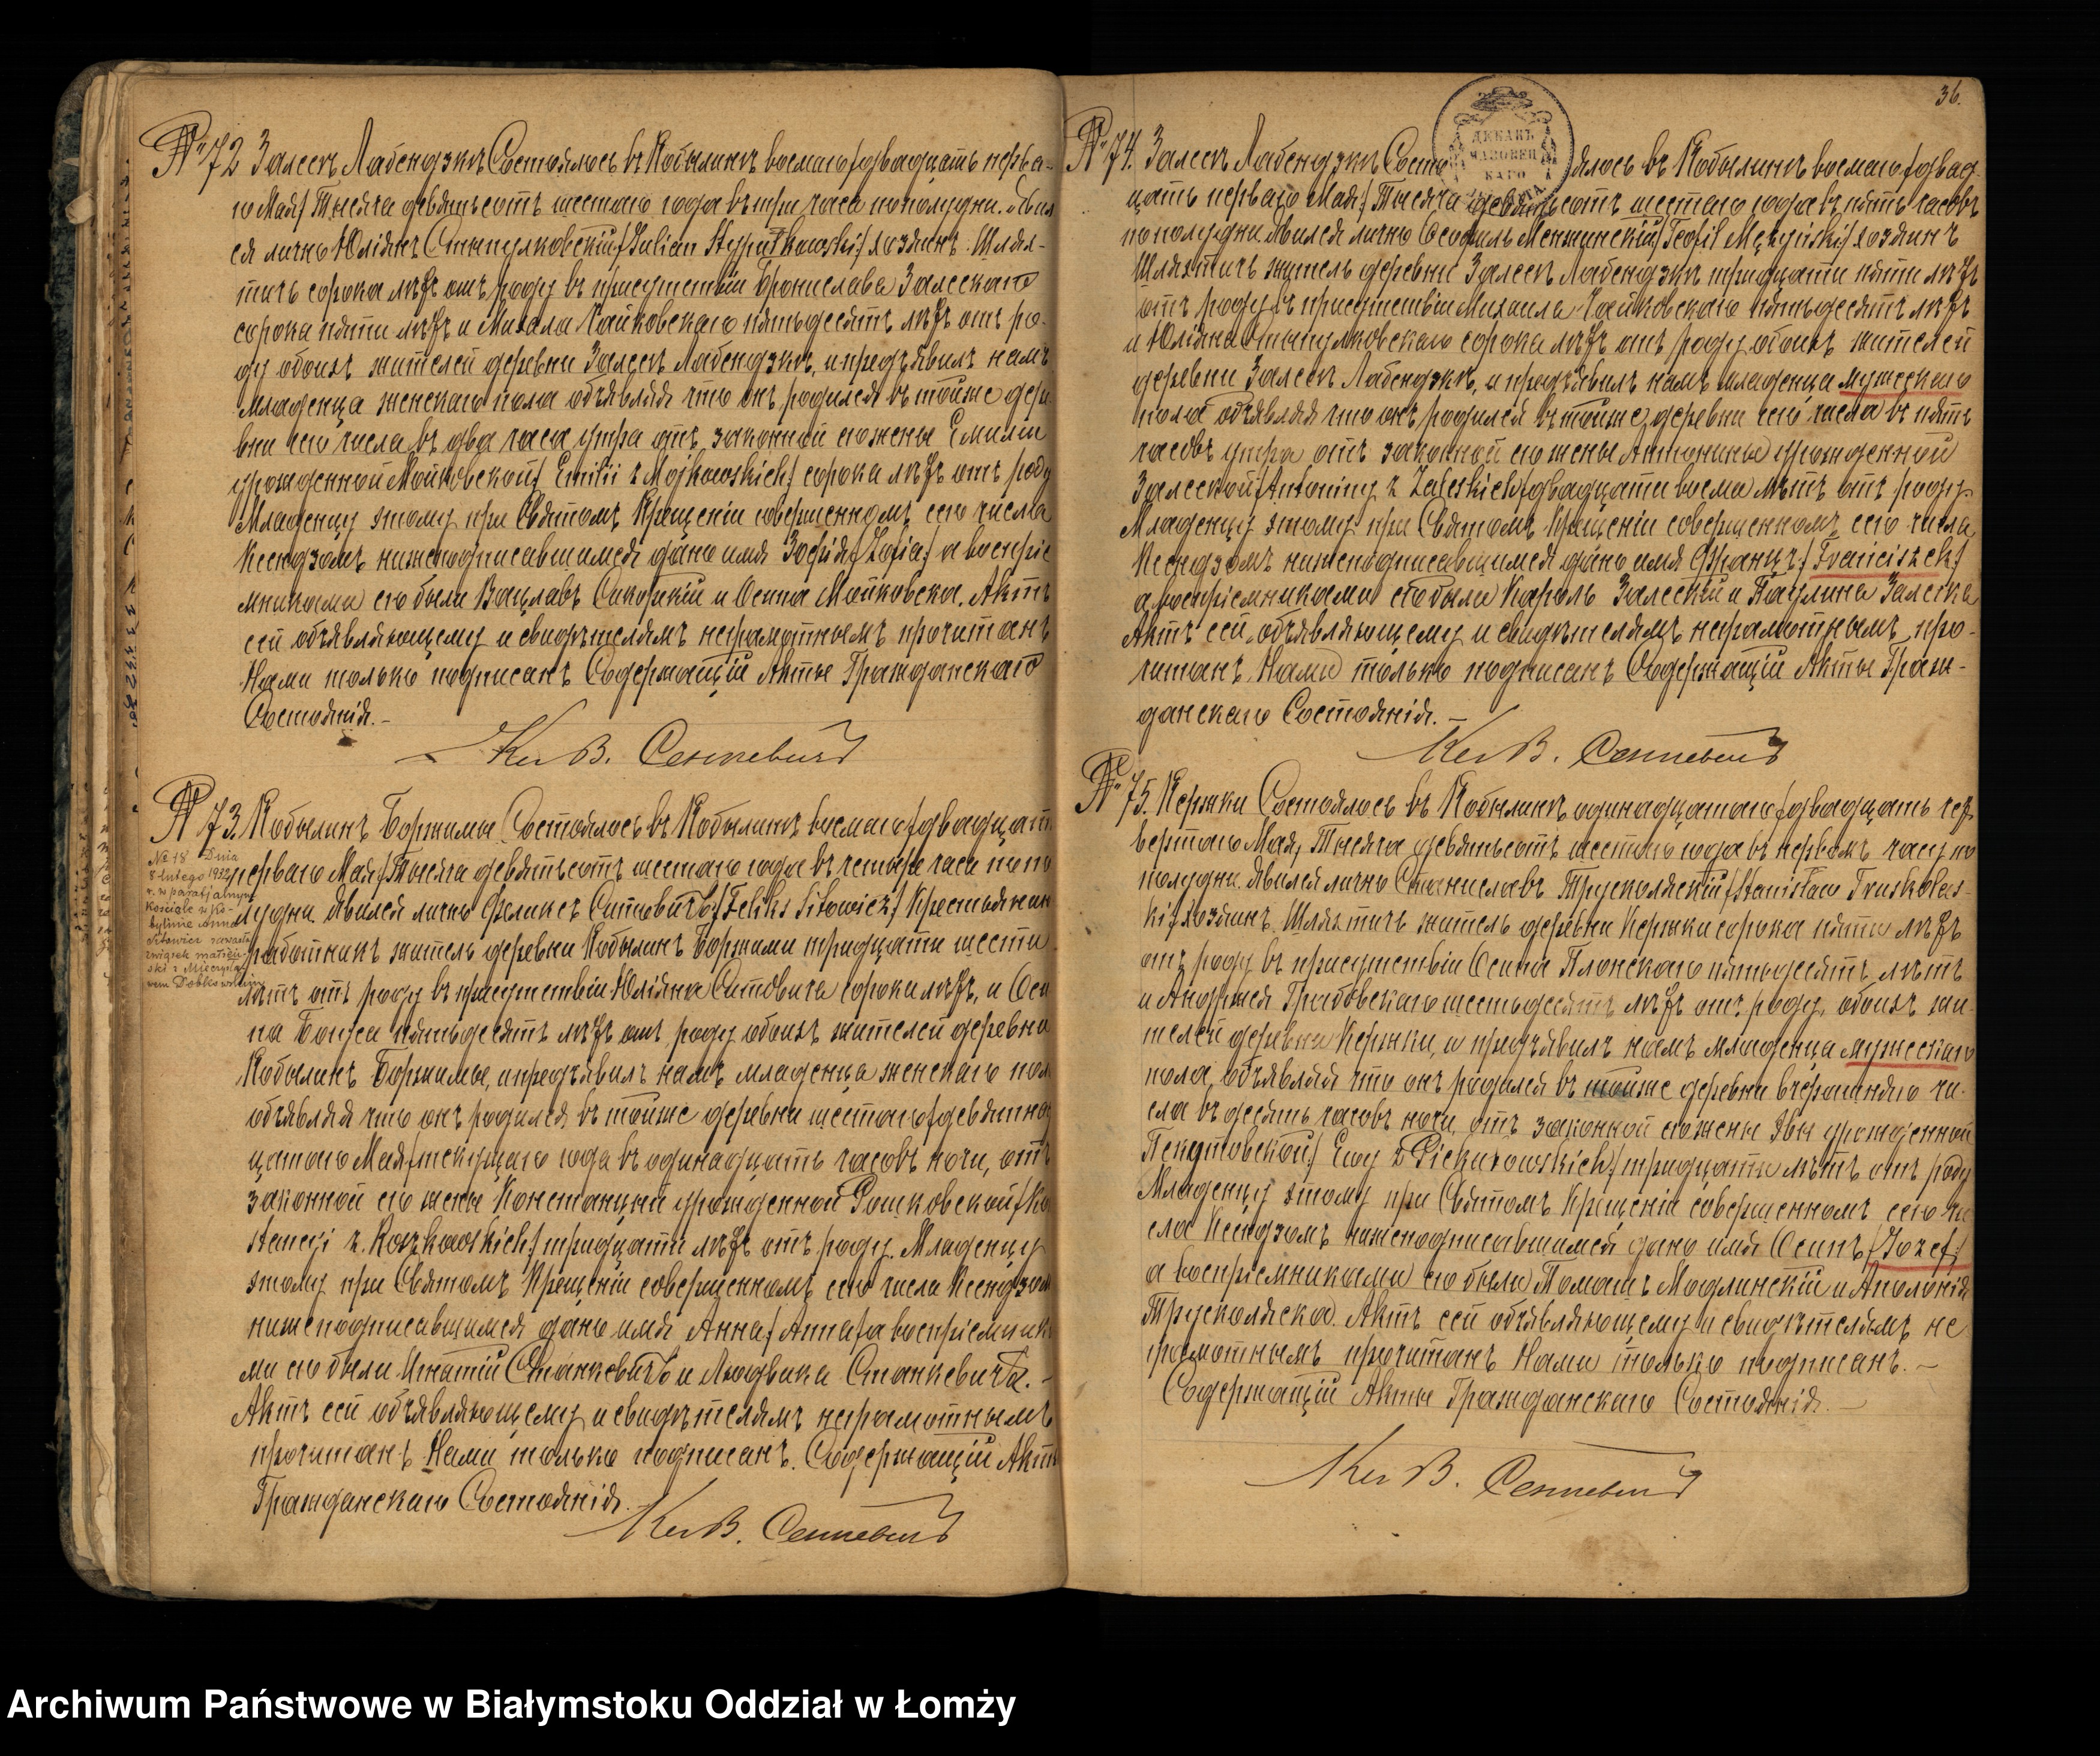 № 72 Залесе Лабендзкѣ Состоялось въ Кобылинѣ восьмаго/двадцать перва-
го Мая/ Тысяча девятьсотъ шестаго года въ три часа пополудни. Явил
ся лично Юліянъ Стыпулковскій/Julian Stypułkowski/ хозяинъ Шлях-
тичъ сорока лѣтъ отъ роду въ присутствіи Бронислава Залескаго
сорока пяти лѣтъ и Михала Чайковскаго пятьдесятъ лѣтъ отъ ро-
ду обоихъ жителей деревни Залесе Лабендзкѣ, и предъявилъ намъ
младенца женскаго пола объявляя что онъ родился въ тойже дере
вни сего числа въ два часа утра отъ законной его жены Емиліи
урожденной Мойковской/ Emilii z Mojkowskich/ сорока лѣтъ отъ роду
Младенцу этому при Святомъ Крещеніи совершенномъ сего числа
Ксендзомъ нижеподписавшимся дано имя Зофія/Zofia/ а воспріе
мниками его были Вацлавъ и Осипа Мойковска. Актъ
сей объявляющему и свидѣтелямъ неграмотнымъ прочитанъ
Нами только подписанъ Содержащій Акты Гражданскаго
Состоянія.-
Кс В. Сенкевичъ
№ 73. Кобылинъ Боржимы Состоялось въ Кобылинѣ восьмаго/двадцать
перваго Мая/ Тысяча девятьсотъ шестаго года въ четыре часа попо
лудни Явился лично Феликсъ Ситовичъ/Feliks Sitowicz/ Крестьянинъ
работникъ житель деревни Кобылинъ Боржими тридцати шести
лѣтъ отъ роду въ присутствіи Юліяна Ситовича сорока лѣтъ, и Оси
па пятьдесятъ лѣтъ отъ роду обоихъ жителей деревни
Кобылинъ Боржимы, и предъявилъ намъ младенца женскаго пола
объявляя что онъ родился въ тойже деревни шестаго/девятнад
цатаго Мая/текущаго года въ одинадцать часовъ ночи, отъ
законной его жены Констанціи урожденной Рошковской/Kon
stancji z. Roszkowskich/ тридцати лѣтъ отъ роду. Младенцу
этому при Святомъ Крещеніи совершенномъ сего числа Ксендзомъ
нижеподписавшимся дано имя Анна/ Anna/ а воспріемника
ми его были Игнатій Станкевичъ и Людвика Станкевичъ. -
Актъ сей объявляющему и свидѣтелямъ неграмотнымъ
прочитанъ Нами только подписанъ. Содержащій Акты
Гражданскаго Состоянія.
Кс В. Сенкевичъ
№ 18 Dnia
8 lutego 1932
r. w parafjalnym
Kościele w Ko-
bylinie Anna
Sitowicz zawarła
związek małżeń-
ski z Mieczysła-
wem
36.
ДЕКАНЪ
МАЗОВЕЦ
КАГО
№ 74. Залесе Лабендзкѣ Состоялось въ Кобылинѣ восьмаго/двад
цать перваго Мая/ Тысяча девятьсотъ шестаго года въ пять часовъ
пополудни. Явился лично Феофиль Менжинскій/Teofil Mężyński/ хозяинъ
Шляхтичъ житель деревни Залесе Лабендзкѣ тридцати пяти лѣтъ
отъ роду въ присутствіи Михаила Чайковскаго пятьдесятъ лѣтъ
и Юліяна Стыпулковскаго сорока лѣтъ отъ роду обоихъ жителей
деревни Залесе Лабендзкѣ, и предъявилъ намъ младенца мужескаго
пола объявляя что онъ родился въ тойже деревни сего числа въ пять
часовъ утра отъ законной его жены Антонины урожденной
Залеской/Antoniny z Zaleskich/двадцати восьми лѣтъ отъ роду
Младенцу этому при Святомъ Крещеніи совершенномъ сего числа,
Ксендзомъ нижеподписавшимся дано имя Францъ/ Franciszek/
а воспріемниками его были Кароль Залескій и Паулина Залеска
Актъ сей объявляющему и свидѣтелямъ неграмотнымъ про-
читанъ, Нами только подписанъ Содержащій Акты Граж-
данскаго Состоянія.-
Кс В. Сенкевичъ
№ 75. Кержки Состоялось въ Кобылинѣ одинадцатаго/двадцать чет
вертаго Мая, Тысяча девятьсотъ шестаго года въ первомъ часу по
полудни. Явился лично Станиславъ Трусколяскій/Stanisław Truskolas-
ki/ хозяинъ Шляхтичъ житель деревни Кержки сорока пяти лѣтъ
отъ роду въ присутствіи Осипа Плонскаго пятьдесятъ лѣтъ
и Андржея Грабовскаго шестьдесятъ лѣтъ отъ роду, обоихъ жи
телей деревни Кержки, и предъявилъ намъ младенца мужескаго
пола, объявляя что онъ родился въ тойже деревни вчерашняго чи-
сла въ десять часовъ ночи отъ законной его жены Эвы урожденной
Пекутовской/ Ewy z Piekutowskich/ тридцати лѣтъ отъ роду
Младенцу этому при Святомъ Крещеніи совершенномъ сего чи
сла Ксендзомъ нижеподписавшимся дано имя Осипъ/Józef/
а воспріемниками его были Томашъ Модлинскій и Аполонія
Трусколяска. Актъ сей объявляющему и свидѣтелямъ не
грамотнымъ прочитанъ Нами только подписанъ. -
Содержащій Акты Гражданскаго Состоянія. -
Кс В. Сенкевичъ
Archiwum Państwowe w Białymstoku Oddział w Łomży